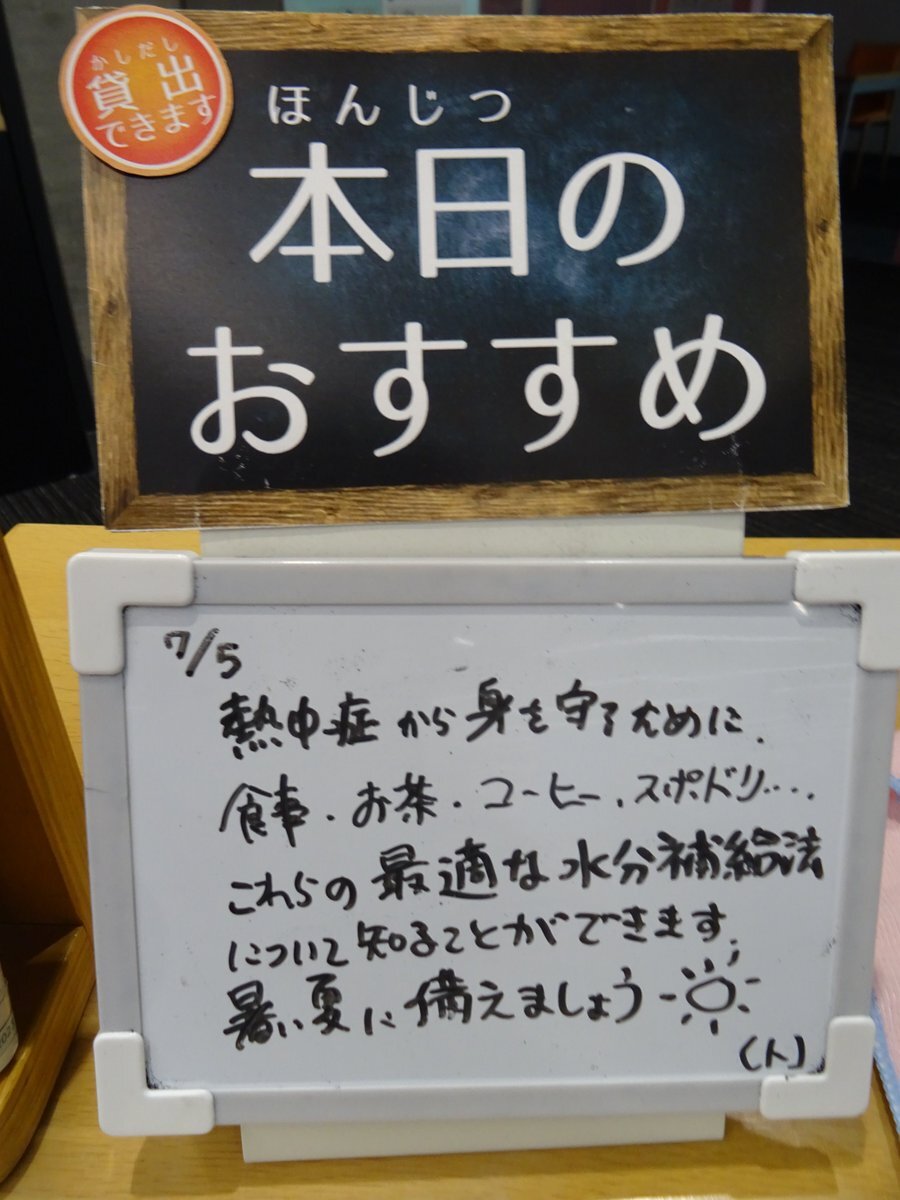 かしだし
貸出
できます
ほんじつ
本日の
おすすめ
7/5
熱中症から身を守るために、
食事・お茶・コーヒー、スポドリ・・・・
これらの最適な水分補給法
について知ることができます。
暑い夏に備えましょう